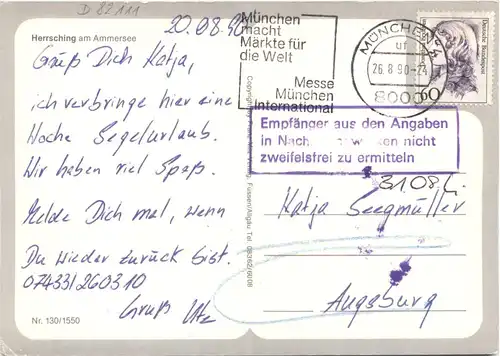 D 82111
Herrsching am Ammersee
20.08.90
Grüß Dich Katja,
ich verbringe hier eine
Woche Segelurlaub.
Wir haben viel Spaß.
Melde Dich mal, wenn
Du wieder zurück bist.
07433/260310
Gruß Utz
Nr. 130/1550
München
macht
Märkte für
die Welt
Messe
München
International
MÜNCHEN
26.8.90-24
8000
Deutsche Bundespost
60
Empfänger aus den Angaben
in nicht
zweifelsfrei zu ermitteln
31.08.
Katja Seegmüller
Augsburg
Füssen/Allgäu Tel. 08362/6008